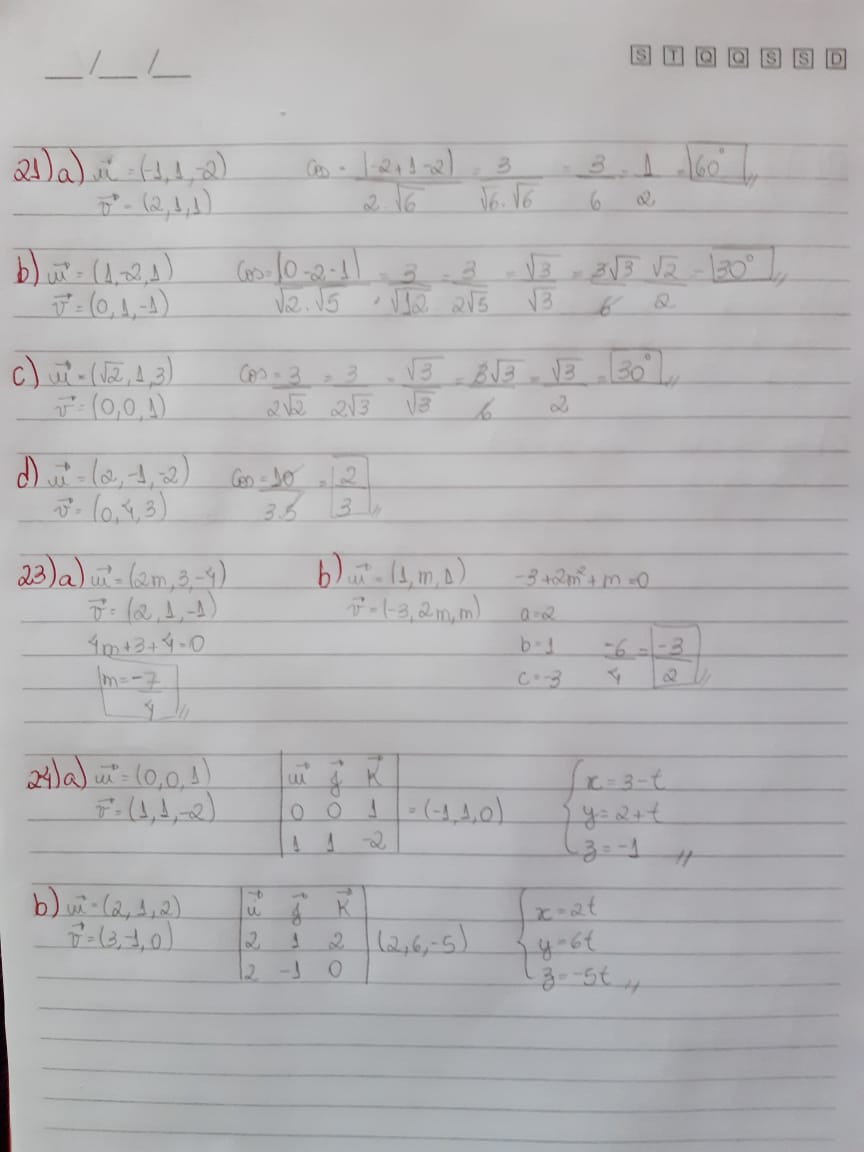 __/__/__ S T Q Q S S D
21)a) u⃗ = (-1, 1, -2) cos = |-2+1-2| / 2.√6 = 3 / √6.√6 = 3/6 = 1/2 = 60°
v⃗ = (2,1,1)
b) u⃗ = (1,-2,1) cos = |0-2-1| / √2.√5 = 3/√12 = 3/2√5 = √3/√3 = 3√3/6 √2/2 = 30°
v⃗ = (0,1,-1)
c) u⃗ = (√2,1,3) cos = 3/2√2 = 3/2√3 = √3/√3 = 3√3/6 = √3/2 = 30°
v⃗ = (0,0,1)
d) u⃗ = (2,-1,-2) cos = 10/3.5 = 2/3
v⃗ = (0,4,3)
23)a) u⃗ = (2m,3,-4)
v⃗ = (2,1,-1)
4m+3+4=0
m = -7/4
b) u⃗ = (1,m,1)
v⃗ = (-3,2m,m)
-3+2m²+m=0
a=2
b=1
c=-3
-6/4 = -3/2
24)a) u⃗ = (0,0,1)
v⃗ = (1,1,-2)
u⃗ j⃗ k⃗
0 0 1 = (-1,1,0)
1 1 -2
x = 3-t
y = 2+t
z = -1
b) u⃗ = (2,1,2)
v⃗ = (3,-1,0)
u⃗ j⃗ k⃗
2 1 2 (2,6,-5)
2 -1 0
x = 2t
y = 6t
z = -5t